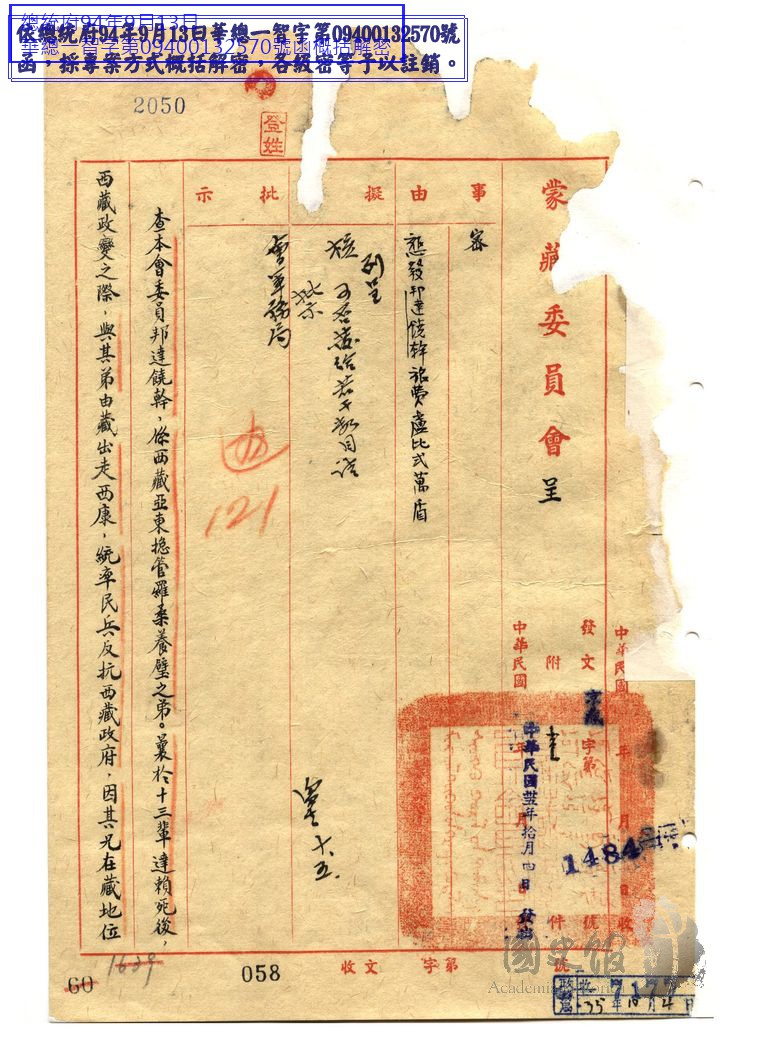 總統府94年9月13日
華總一智字第09400132570號函概括解密
依總統府94年9月13日華總一智字第09400132570號
函，採專案方式概括解密，各級密等予以註銷。
2050
登姓
蒙藏委員會 呈
事由
擬
批示
密
懇發邦達饒幹旅費盧比弍萬盾
列呈
核
可否
批示
軍務局
十、五、
121
查本會委員邦達饒幹，係西藏亞東總管羅桑養壁之弟。曩於十三輩達賴死後，
西藏政變之際，與其弟由藏出走西康，統率民兵反抗西藏政府，因其兄在藏地位
中華民國 年 月 日收
發文 京藏 字第 號
1484
附 件 號
中華民國 年 月 日
中華民國卅五年拾月四日 發出
收文 字 第
國史館
政務局 收 717
35年10月4日
058
1639
60